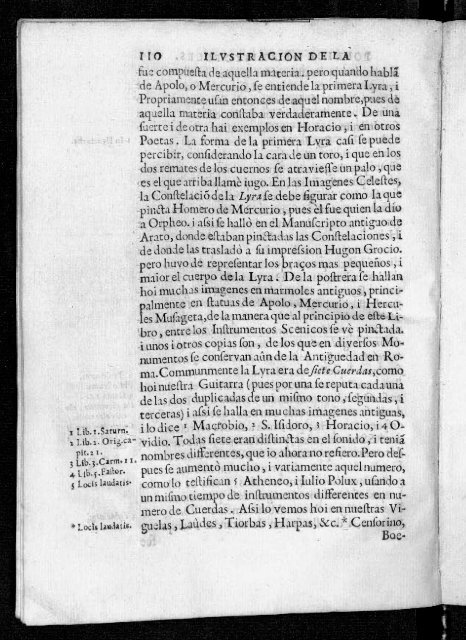 110 ILVSTRACION DE LA
fue compuesta de aquella materia. pero quando hablã
de Apolo, o Mercurio, se entiende la primera Lyra, i
Propriamente usan entonces de aquel nombre, pues de
aquella materia constaba verdaderamente. De una
suerte i de otra hai exemplos en Horacio, i en otros
Poetas. La forma de la primera Lyra casi se puede
percibir, considerando la cara de un toro, i que en los
dos remates de los cuernos se atraviesse un palo, que
es el que arriba llamè iugo. En las Imagenes Celestes,
la Constelaciõ de la Lyra se debe figurar como la que
pincta Homero de Mercurio, pues el fue quien la dio
a Orpheo. i assi se hallò en el Manuscripto antiguo de
Arato, donde estaban pinctadas las Constelaciones, i
de donde las trasladò a su impression Hugon Grocio.
pero huvo de representar los braços mas pequeños, i
maior el cuerpo de la Lyra. De la postrera se hallan
hoi muchas imagenes en marmoles antiguos, princi-
palmente en statuas de Apolo, Mercurio, i Hercu-
les Musageta, de la manera que al principio de este Li-
bro, entre los Instrumentos Scenicos se vè pinctada.
i unos i otros copias son, de los que en diversos Mo-
numentos se conservan aûn de la Antiguedad en Ro-
ma. Communmente la Lyra era de siete Cuerdas, como
hoi nuestra Guitarra (pues por una se reputa cada una
de las dos duplicadas de un mismo tono, segundas, i
terceras) i assi se halla en muchas imagenes antiguas,
i lo dice 1 Macrobio, 2 S. Isidoro, 3 Horacio, i 4 O-
vidio. Todas siete eran distinctas en el sonido, i teniã
nombres differentes, que io ahora no refiero. Pero des-
pues se aumentò mucho, i variamente aquel numero,
como lo testifican 5 Atheneo, i Iulio Polux, usando a
un mismo tiempo de instrumentos differentes en nu-
mero de Cuerdas. Assi lo vemos hoi en nuestras Vi-
guelas, Laûdes, Tiorbas, Harpas, &c. * Censorino,
Boe-
1 Lib. 1. Saturn.
2 Lib. 2. Orig. ca-
pit. 21.
3 Lib. 3. Carm. 11.
4 Lib. 5. Fastor.
5 Locis laudatis.
* Locis laudatis.